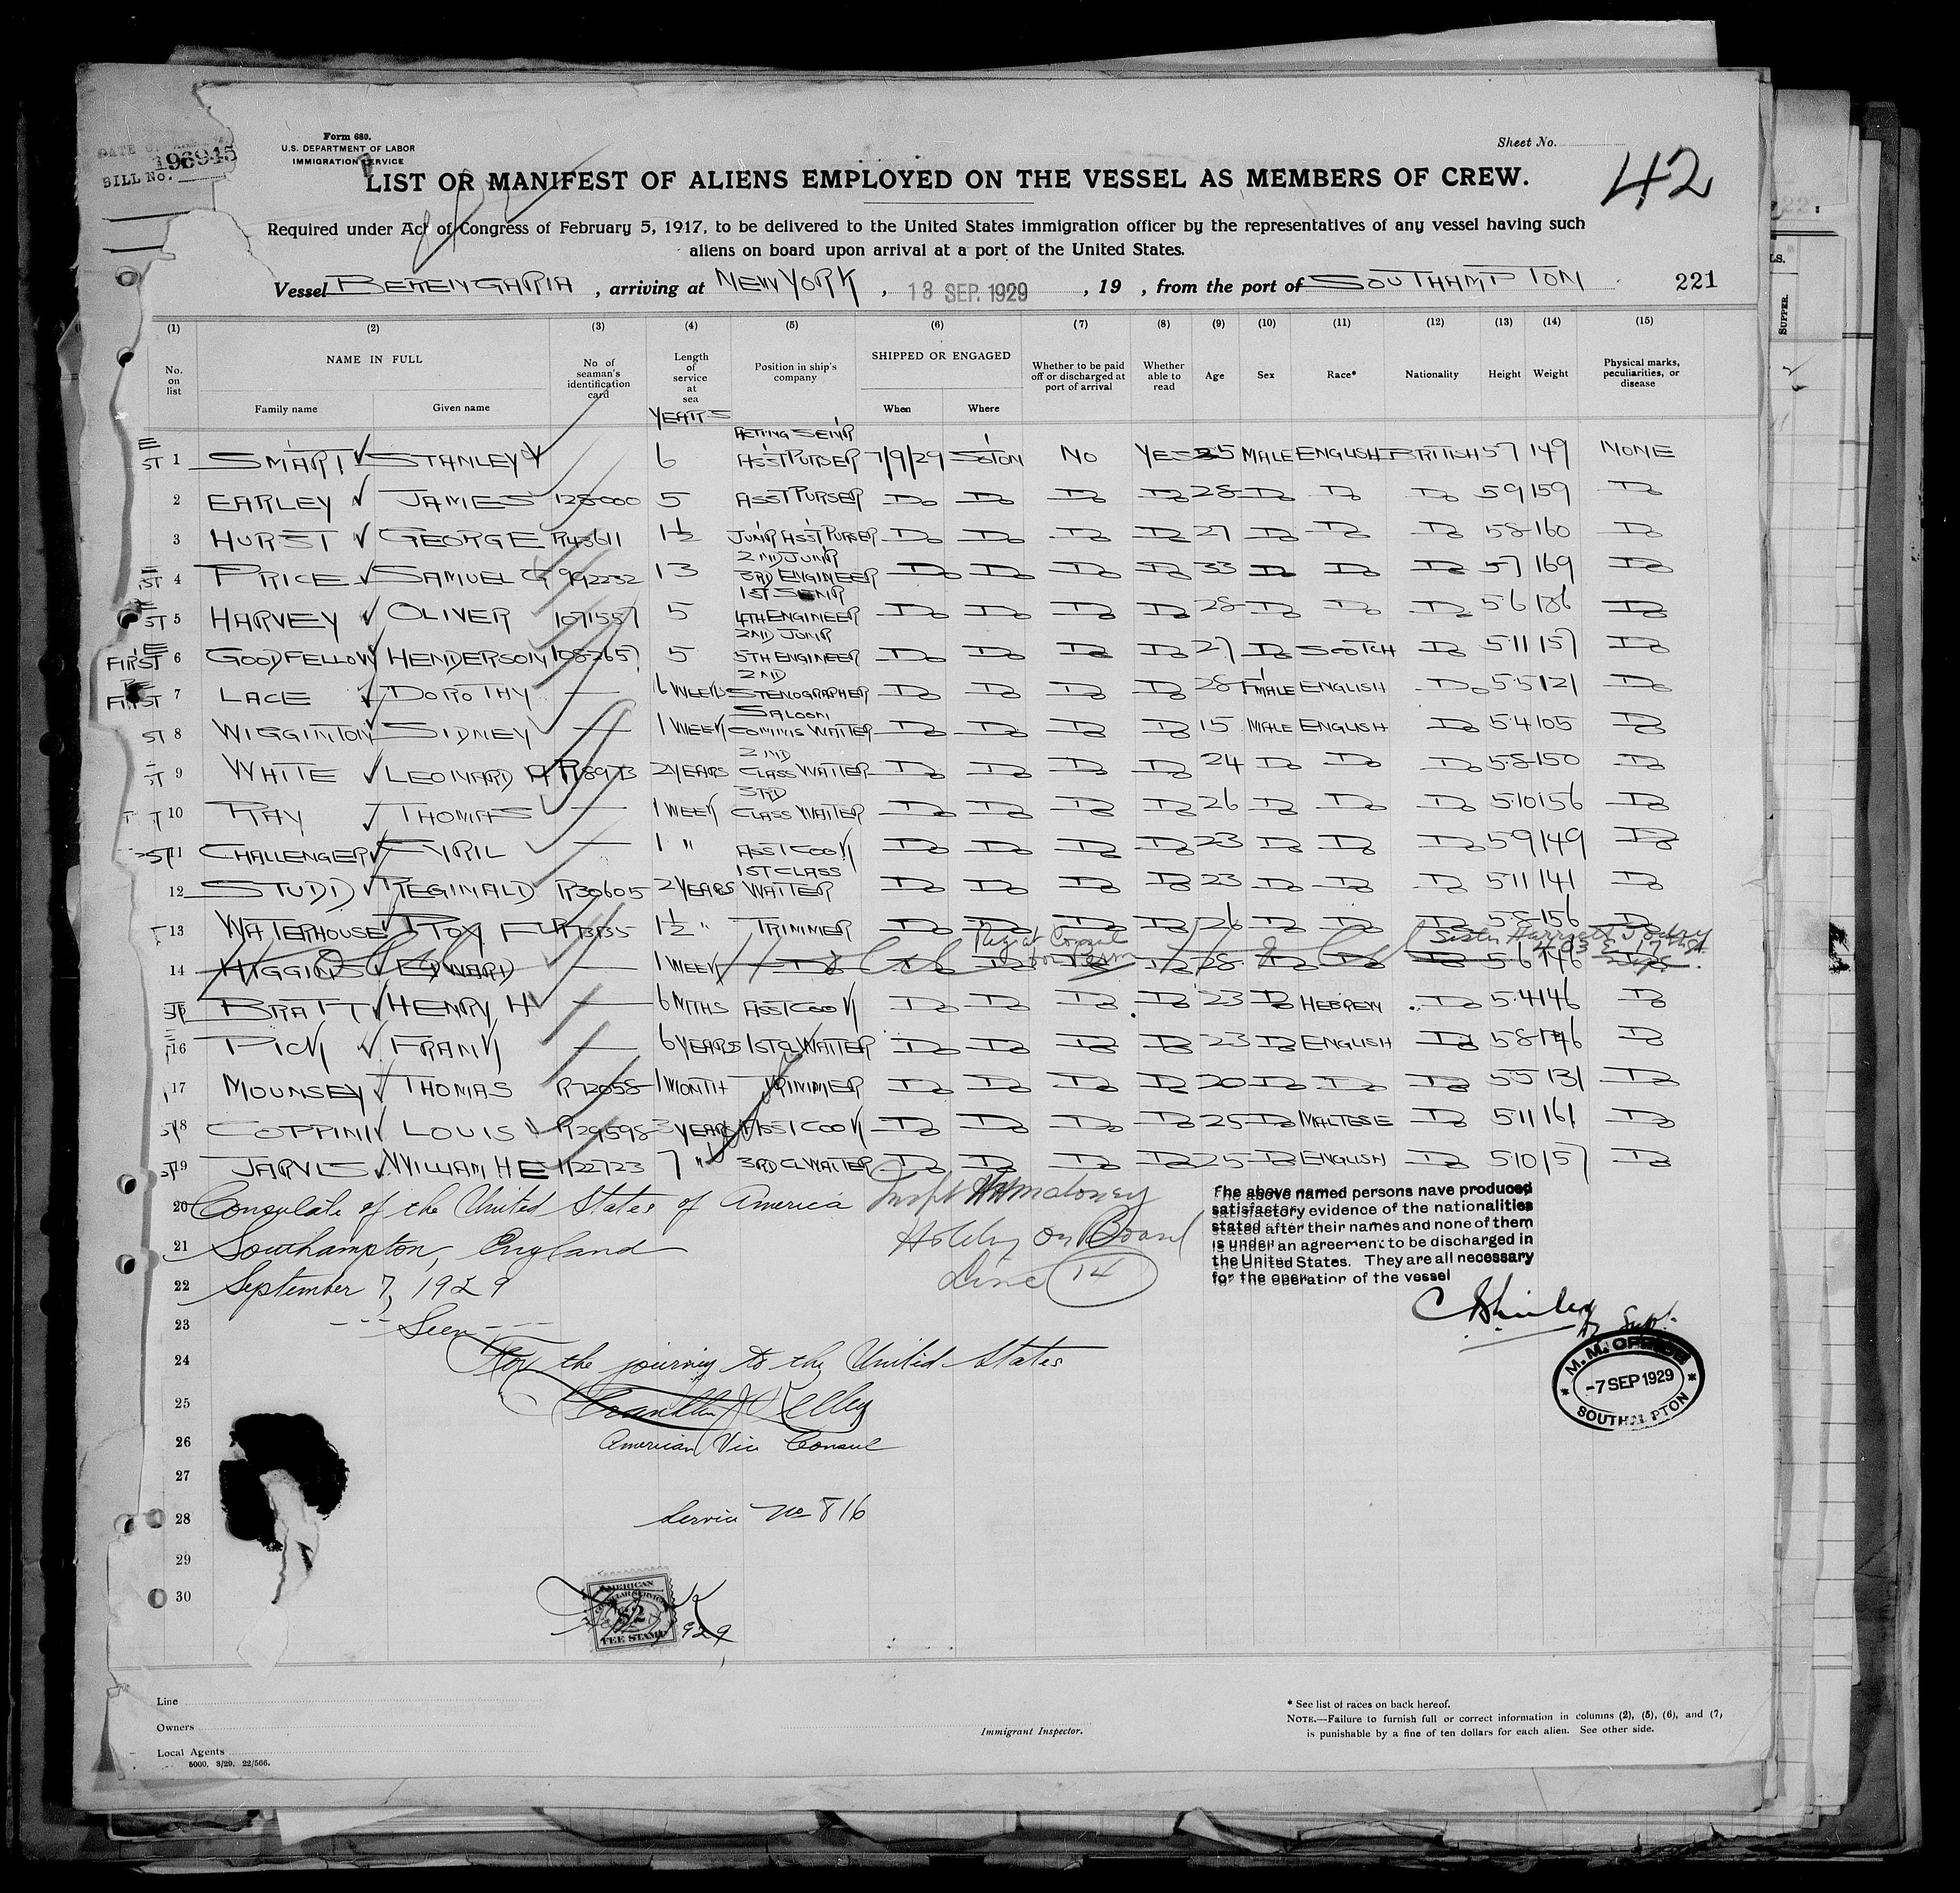 196945
BILL No.
Form 680.
U.S. DEPARTMENT OF LABOR
IMMIGRATION SERVICE
Sheet No.
42
LIST OR MANIFEST OF ALIENS EMPLOYED ON THE VESSEL AS MEMBERS OF CREW.
Required under Act of Congress of February 5, 1917, to be delivered to the United States immigration officer by the representatives of any vessel having such
aliens on board upon arrival at a port of the United States.
Vessel BERENGARIA, arriving at NEW YORK, 13 SEP. 1929, 19 , from the port of SOUTHAMPTON 221
(1) (2) (3) (4) (5) (6) (7) (8) (9) (10) (11) (12) (13) (14) (15)
No. on list NAME IN FULL No of seaman's identification card Length of service at sea Position in ship's company SHIPPED OR ENGAGED Whether to be paid off or discharged at port of arrival Whether able to read Age Sex Race* Nationality Height Weight Physical marks, peculiarities, or disease
Family name Given name When Where
YEARS
ST 1 SMART STANLEY 6 ACTING SENR ASST PURSER 7/9/29 SOTON NO YES 35 MALE ENGLISH BRITISH 57 149 NONE
2 EARLEY JAMES 128000 5 ASST PURSER Do Do Do Do 28 Do Do Do 59 159 Do
3 HURST GEORGE R43611 1½ JUNR ASST PURSER Do Do Do Do 27 Do Do Do 58 160 Do
ST 4 PRICE SAMUEL G 992232 13 2ND JUNR 3RD ENGINEER Do Do Do Do 33 Do Do Do 57 169 Do
ST 5 HARVEY OLIVER 1071557 5 1ST SENR 4TH ENGINEER Do Do Do Do 28 Do Do Do 56 186 Do
FIRST 6 GOODFELLOW HENDERSON 1085265 5 2ND JUNR 5TH ENGINEER Do Do Do Do 27 Do SCOTCH Do 5·11 157 Do
FIRST 7 LACE DOROTHY — 6 WEEKS 2ND STENOGRAPHER Do Do Do Do 28 F'MALE ENGLISH Do 5·5 121 Do
ST 8 WIGGINTON SIDNEY — 1 WEEK SALOON COMMIS WAITER Do Do Do Do 15 MALE ENGLISH Do 5·4 105 Do
ST 9 WHITE LEONARD A R18973 2 YEARS 2ND CLASS WAITER Do Do Do Do 24 Do Do Do 58 150 Do
10 RAY THOMAS — 1 WEEK 3RD CLASS WAITER Do Do Do Do 26 Do Do Do 5·10 156 Do
ST 11 CHALLENGER CYRIL — 1 " ASST COOK Do Do Do Do 23 Do Do Do 59 149 Do
12 STUDD REGINALD R30605 2 YEARS 1ST CLASS WAITER Do Do Do Do 23 Do Do Do 511 141 Do
13 WATERHOUSE ROY F 1½ " TRIMMER Do Do Do Do 26 Do Do Do 58 156 Do
14 HIGGINS EDWARD — 1 WEEK Do Do Do Do 28 Do Do Do 56 146 Do
15 BRATT HENRY H — 6 MTHS ASST COOK Do Do Do Do 23 Do HEBREW Do 5·4 146 Do
16 PICK FRANK — 6 YEARS 1ST CL WAITER Do Do Do Do 23 Do ENGLISH Do 58 146 Do
17 MOUNSEY THOMAS R72058 1 MONTH TRIMMER Do Do Do Do 20 Do Do Do 55 131 Do
ST 18 COPPINI LOUIS R29598 3 YEARS ASST COOK Do Do Do Do 25 Do MALTESE Do 511 161 Do
ST 19 JARVIS WILLIAM H E 1122723 7 " 3RD CL WAITER Do Do Do Do 25 Do ENGLISH Do 510 157 Do
20 Consulate of the United States of America
21 Southampton, England
22 September 7, 1929
23 --- Seen ---
24 For the journey to the United States
25
26 American Vice Consul
27
28 Service No 816
29
30
on Board
Line 14
The above named persons have produced
satisfactory evidence of the nationalities
stated after their names and none of them
is under an agreement to be discharged in
the United States. They are all necessary
for the operation of the vessel
Supt.
M.M. OFFICE
-7 SEP 1929
SOUTHAMPTON
AMERICAN
CONSULAR SERVICE
$2
FEE STAMP
1929
Line
Owners
Local Agents
5000. 3/29. 22/566.
Immigrant Inspector.
* See list of races on back hereof.
NOTE.—Failure to furnish full or correct information in columns (2), (5), (6), and (7,
is punishable by a fine of ten dollars for each alien. See other side.
SUPPER.